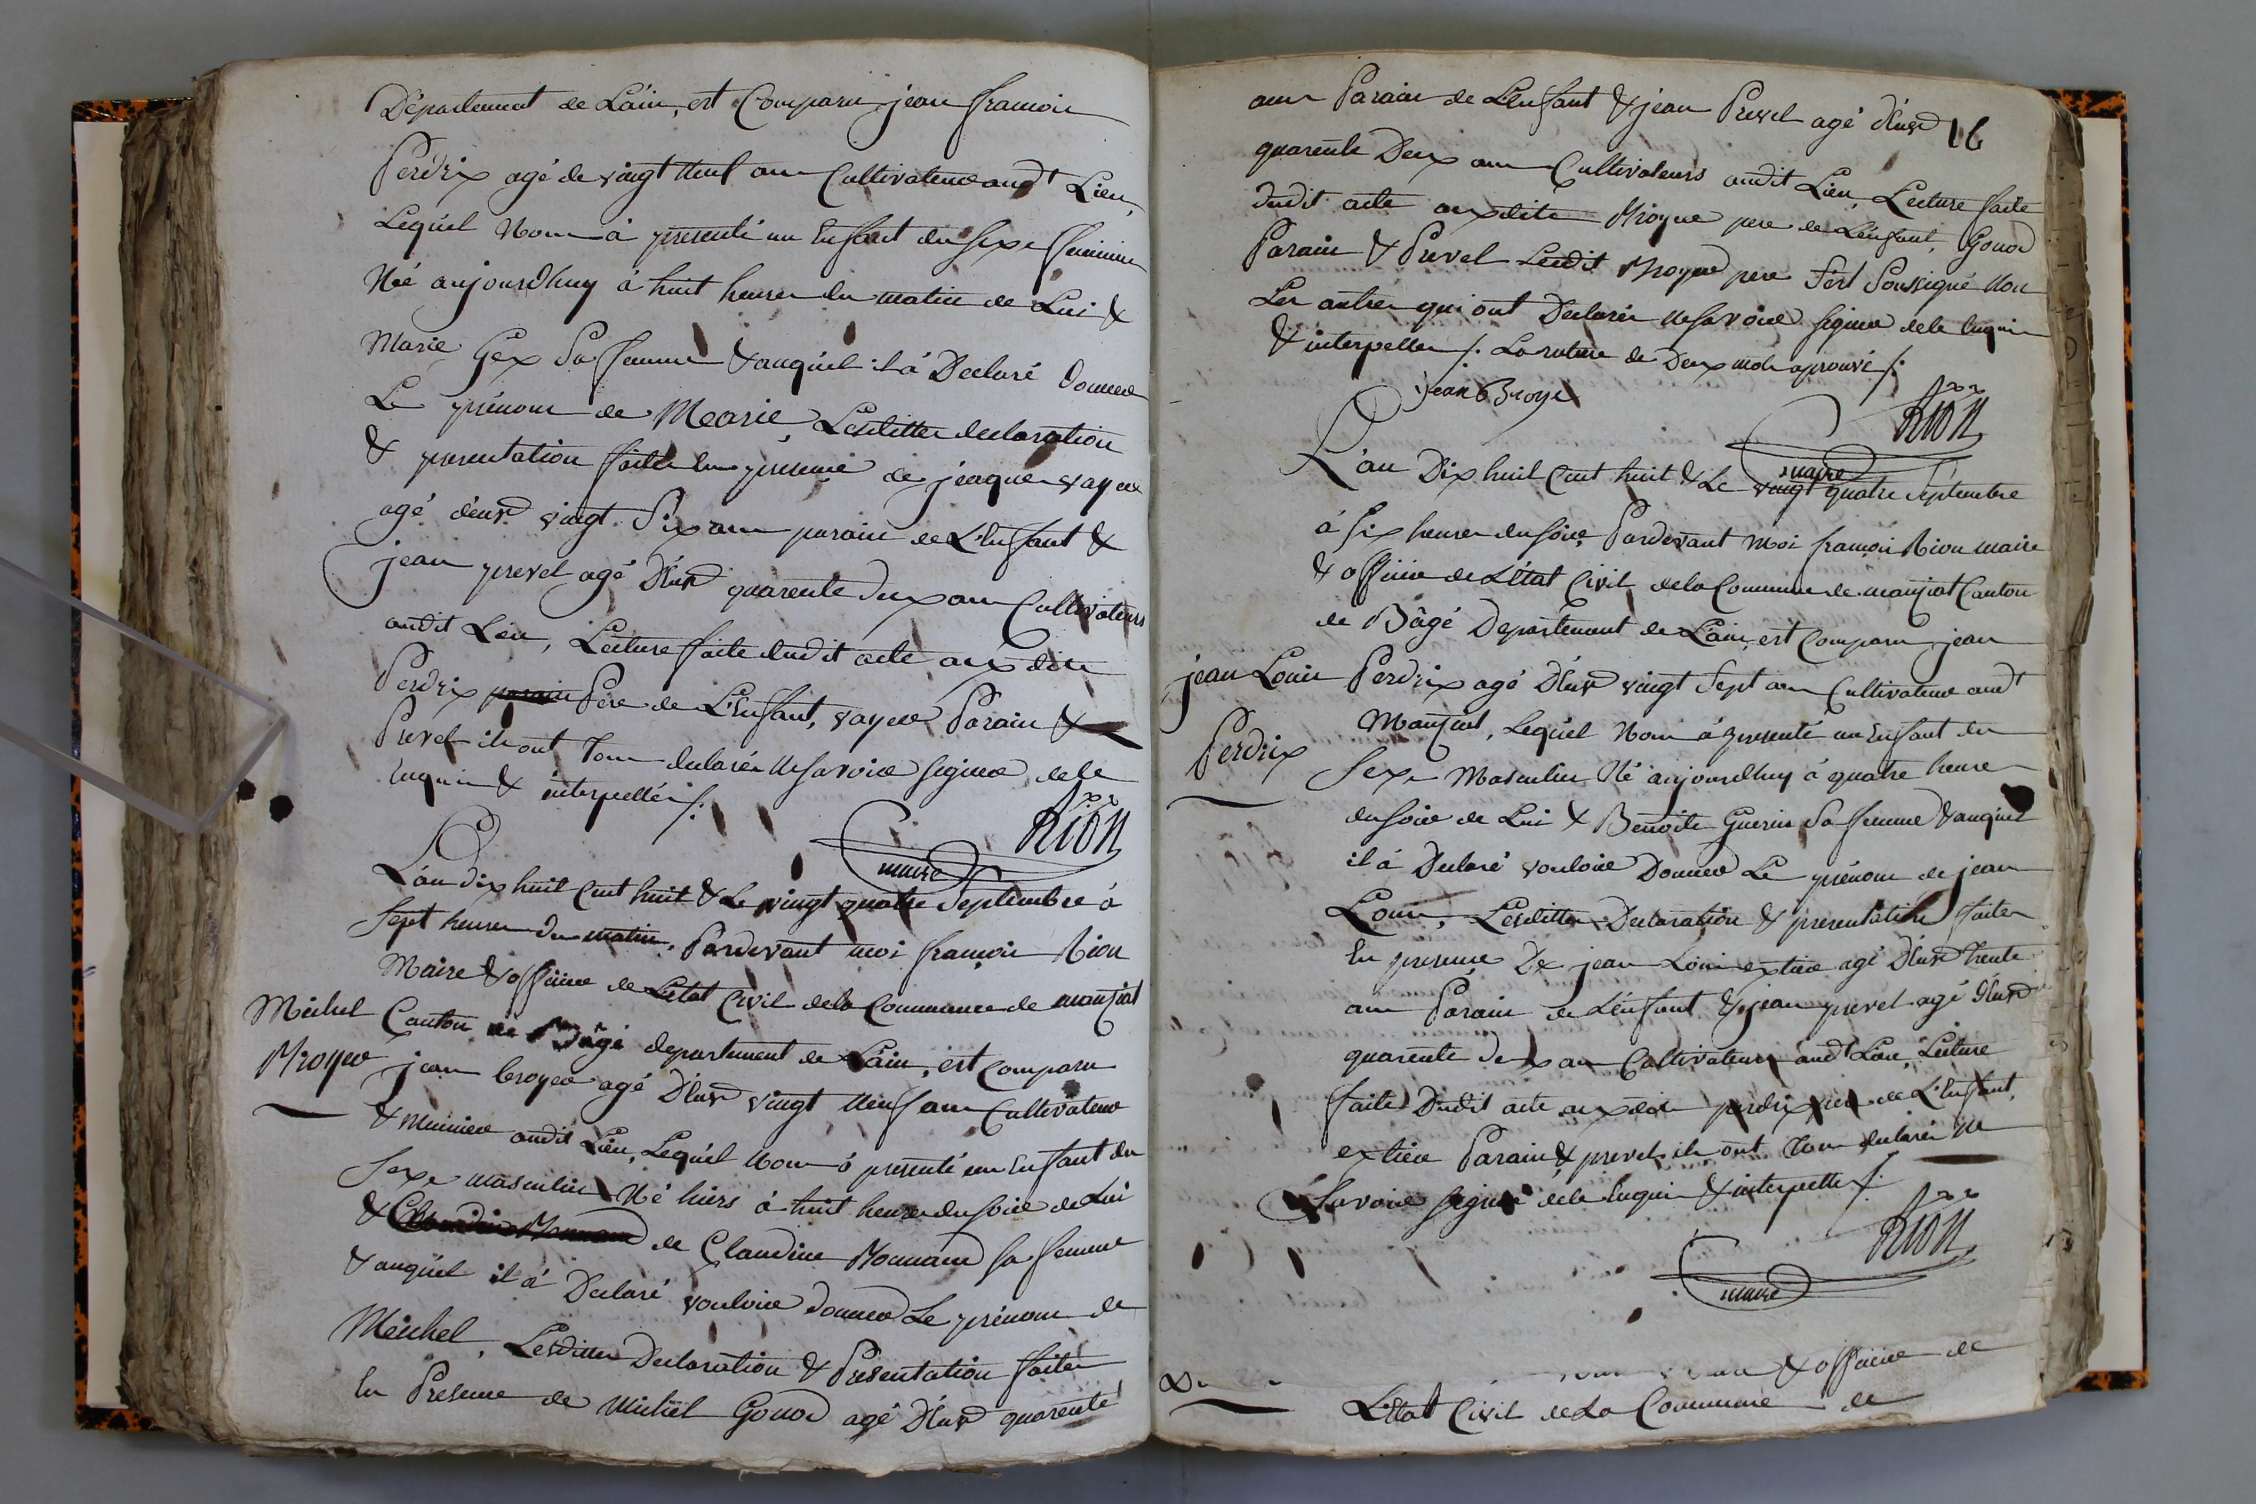 Département de L'ain, est Comparu jean françois
Perdrix agé de vingt Neuf ans Cultivateur audt Lieu,
Lequél Nous à presenté un Enfant du sexe feminin
Né aujourdhuy à huit heures du matin de Lui &
Marie Gex Sa femme & auquél il à Declaré donner
Le prénom de Marie, Lesdittes declaration
& presentation faittes En presence de jacques vayer
agé d'Env vingt Six ans parain de L'Enfant &
jean prevel agé D'Env quarente deux ans Cultivateurs
audit Lieu, Lecture faite dudit acte aux dits
Perdrix parain Pére de L'Enfant, vayer Parain &
Prevel ils ont tous declarés ne savoir signer de ce
Enquis & interpellés ./.
Rion
maire
L'an dix huit Cent huit & Le vingt quatre Septembre à
Sept heures du matin, Pardevant moi françois Rion
Maire & officier de L'état Civil de la Commune de manziat
Canton de Bâgé departement de L'ain, est Comparu
Michel
Broyer
jean broyer agé D'Env vingt Neuf ans Cultivateur
& Munier audit Lieu, Lequél Nous à presenté un Enfant du
Sexe masculin Né hiers à huit heures du soir de Lui
& Claudine Monnard de Claudine Monnard sa femme
& auquél il à Declaré vouloir donner Le prénom de
Michel, Lesdittes Declaration & Presentation faites
En Presence de Michel Gonod agé D'Env quarente
16
ans Parain de L'Enfant & jean Prevel agé d'Env
quarente Deux ans Cultivateurs audit Lieu, Lecture faite
dudit acte auxdits Broyer pere de L'énfant, Gonod
Parain & Prevel Ledit Broyer pere S'est Soussigné Non
Les autres qui ont Declarés ne savoir signer de ce Enquis
& interpellés ./. La rature de Deux mots aprouvé ./.
jean Broye
Rion
maire
L'an Dix huit Cent huit & Le vingt quatre Septembre
à Six heures du soir, Pardevant Moi françois Rion maire
& officier de L'état Civil de la Commune de manziat Canton
de Bâgé Departement de L'ain, est Comparu jean
jean Louis
Perdrix
Perdrix agé D'Env vingt Sept ans Cultivateur audt
Manziat, Lequél Nous à presenté un Enfant du
Sexe Masculin Né aujourdhuy à quatre heures
du soir de Lui & Benoite Guerin Sa femme & auquél
il à Declaré vouloir Donner Le prénom de jean
Louis, Lesdittes Declaration & presentation faites
En presence De jean Louis extier agé D'Env trente
ans Parain de L'énfant & jean prevel agé d'Env
quarente deux ans Cultivateurs audt Lieu, Lecture
faite Dudit acte aux dits perdrix pere de L'Enfant,
extier Parain & prevel ils ont Tous declarés Ne
Savoir signer de ce Enquis & interpellés ./.
Rion
maire
& officier de
L'état Civil de La Commune de